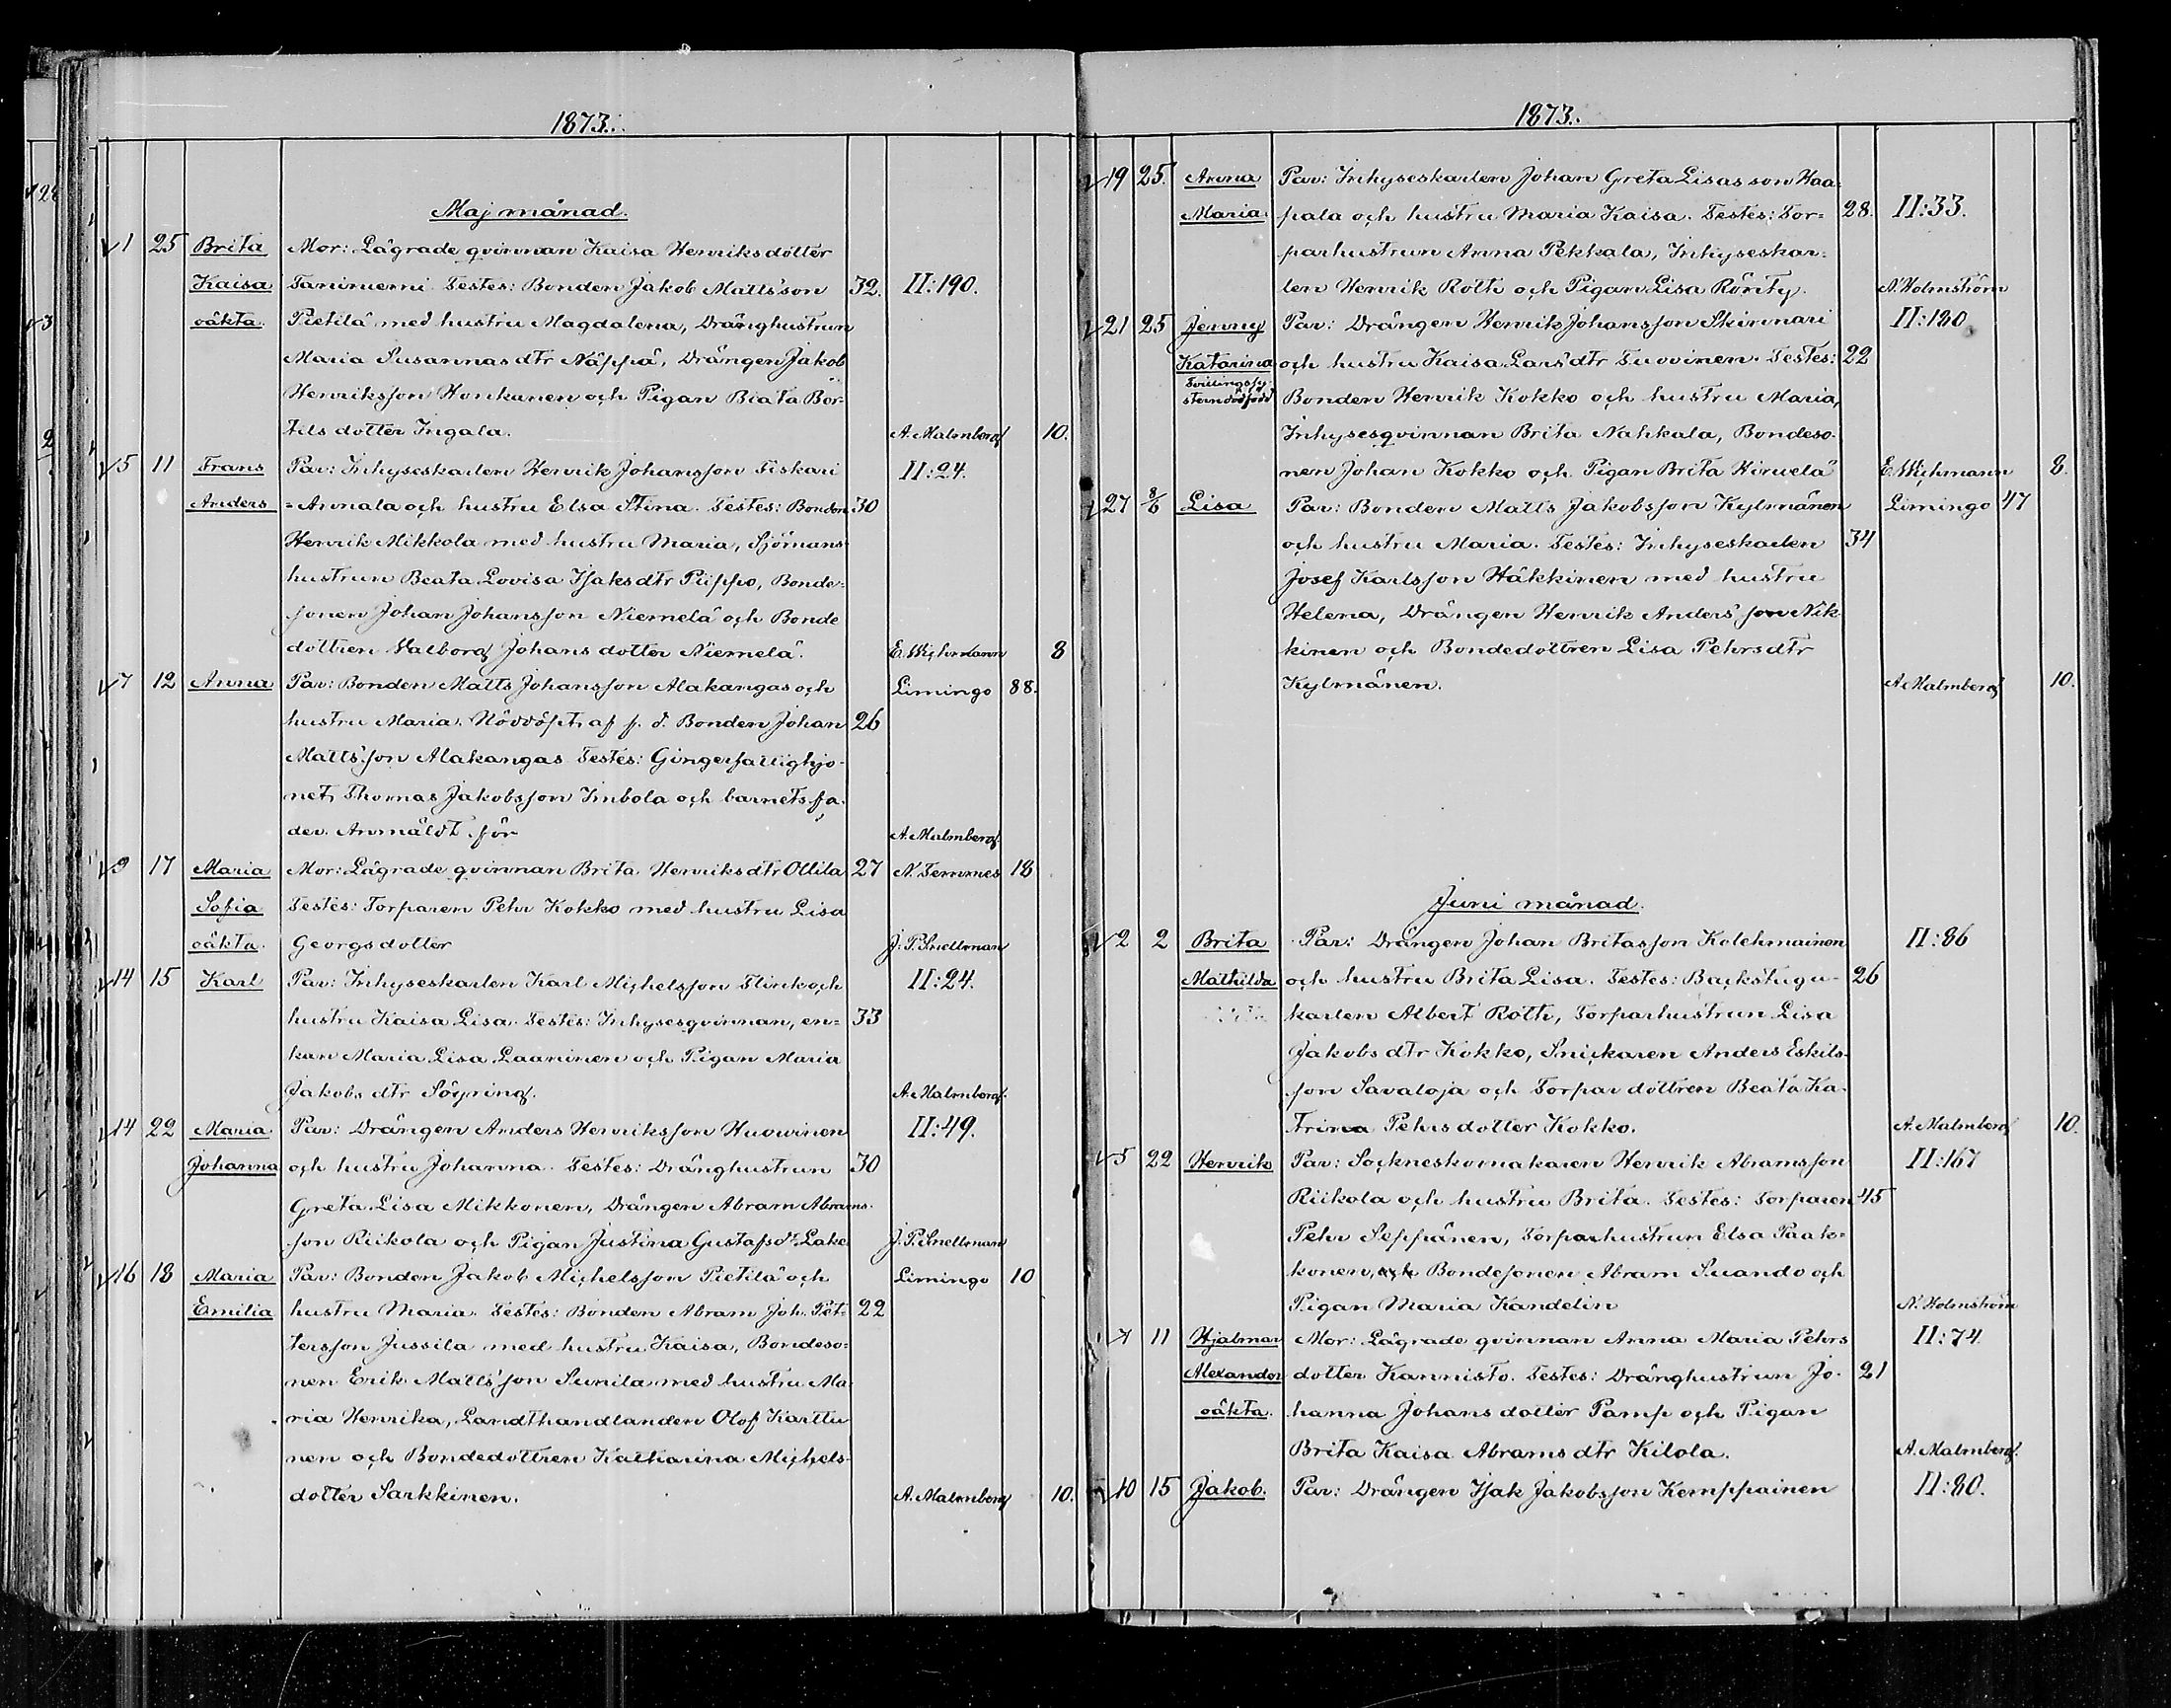 1873.
Maj månad.
1 25 Brita Mor: Lägrade qvinnan Kaisa Henriksdotter
Kaisa Taninuemi Testes: Bonden Jakob Mattsson 32. II:190.
oäkta. Pietilä med hustru Magdalena, Dränghustrun
Maria Susannas dtr Näppä, Drängen Jakob
Henriksson Honkanen och Pigan Biata Ber-
tils dotter Ingala. A. Malmberg 10.
5 11 Frans Par: Inhyseskarlen Henrik Johansson Fiskari II:24.
Anders =Annala och hustru Elsa Stina. Testes: Bonden 30
Henrik Mikkola med hustru Maria, Sjömans-
hustrun Beata Lovisa Isaks dtr Piippo, Bonde-
sonen Johan Johansson Niemelä och Bonde
dottren Valborg Johans dotter Niemelä. E. Wichmann 8
7 12 Anna Par: Bonden Matts Johansson Alakangas och Limingo 88.
hustru Maria. Nöddöpt af f. d. Bonden Johan 26
Mattsson Alakangas Testes: Gingerfattighjo-
net Thomas Jakobsson Imbola och barnets fa-
der. Anmäldt för A. Malmberg.
9 17 Maria Mor: Lägrade qvinnan Brita Henriks dtr Ollila 27 N. Temmes 18
Sofia Testes: Torparen Pehr Kokko med hustru Lisa
oäkta. Georgs dotter J. P. Snellman
14 15 Karl Par: Inhyseskarlen Karl Michelsson Flink och II:24.
hustru Kaisa Lisa. Testes: Inhysesqvinnan, en- 33
kan Maria Lisa Laaninen och Pigan Maria
Jakobs dtr Söyring. A. Malmberg.
14 22 Maria Par: Drängen Anders Henriksson Huowinen II:49.
Johanna och hustru Johanna. Testes: Dränghustrun 30
Greta Lisa Mikkonen, Drängen Abram Abrams-
son Riikola och Pigan Justina Gustafs dr. Lake. J. P. Snellman
16 18 Maria Par: Bonden Jakob Michelsson Pietilä och Limingo 10
Emilia hustru Maria. Testes: Bonden Abram Joh. Pet- 22
tersson Jussila med hustru Kaisa, Bondeso-
nen Erik Mattsson Sunila med hustru Ma-
ria Henrika, Landthandlanden Olof Karttu
nen och Bondedottren Katharina Michels-
dotter Sarkkinen. A. Malmberg 10.
1873.
19 25. Anna Par: Inhyseskarlen Johan Greta Lisas son Haa-
Maria. pala och hustru Maria Kaisa. Testes: Tor= 28. II:33.
parhustrun Anna Pekkala, Inhyseskar-
len Henrik Roth och Pigan Lisa Rönty. N. Holmström
21 25 Jenny Par: Drängen Henrik Johansson Skinnari II:180
Katarina och hustru Kaisa Lars dtr Tuovinen. Testes: 22
Tvillingssy-
stern dödfödd Bonden Henrik Kokko och hustru Maria,
Inhysesqvinnan Brita Nahkala, Bondeso-
nen Johan Kokko och Pigan Brita Hirwelä E. Wichmann 8.
27 8/6 Lisa Par: Bonden Matts Jakobsson Kylmänen Limingo 47
och hustru Maria. Testes: Inhyseskarlen 34
Josef Karlsson Häkkinen med hustru
Helena, Drängen Henrik Anders son Nik-
kinen och Bondedottren Lisa Pehrs dtr
Kylmänen. A. Malmberg 10.
Juni månad.
2 2 Brita Par: Drängen Johan Britasson Kolehmainen II:86
Mathilda och hustru Brita Lisa. Testes: Backstugu- 26
karlen Albert Roth, Torparhustrun Lisa
Jakobs dtr Kokko, Snickaren Anders Eskils-
son Savaloja och Torpar dottren Beata Ka-
trina Pehrs dotter Kokko. A. Malmberg 10.
5 22 Henrik Par: Sockneskomakaren Henrik Abramsson II:167
Riikola och hustru Brita. Testes: Torparen 45
Pehr Seppänen, Torparhustrun Elsa Paak-
konen, och Bondesonen Abram Suando och
Pigan Maria Kandelin N. Holmström
7 11 Hjalmar Mor: Lägrade qvinnan Anna Maria Pehrs II:74.
Alexander dotter Kannisto. Testes: Dränghustrun Jo- 21
oäkta. hanna Johans dotter Pamp och Pigan
Brita Kaisa Abrams dtr Kilola. A. Malmberg.
10 15 Jakob. Par: Drängen Isak Jakobsson Kemppainen II:80.